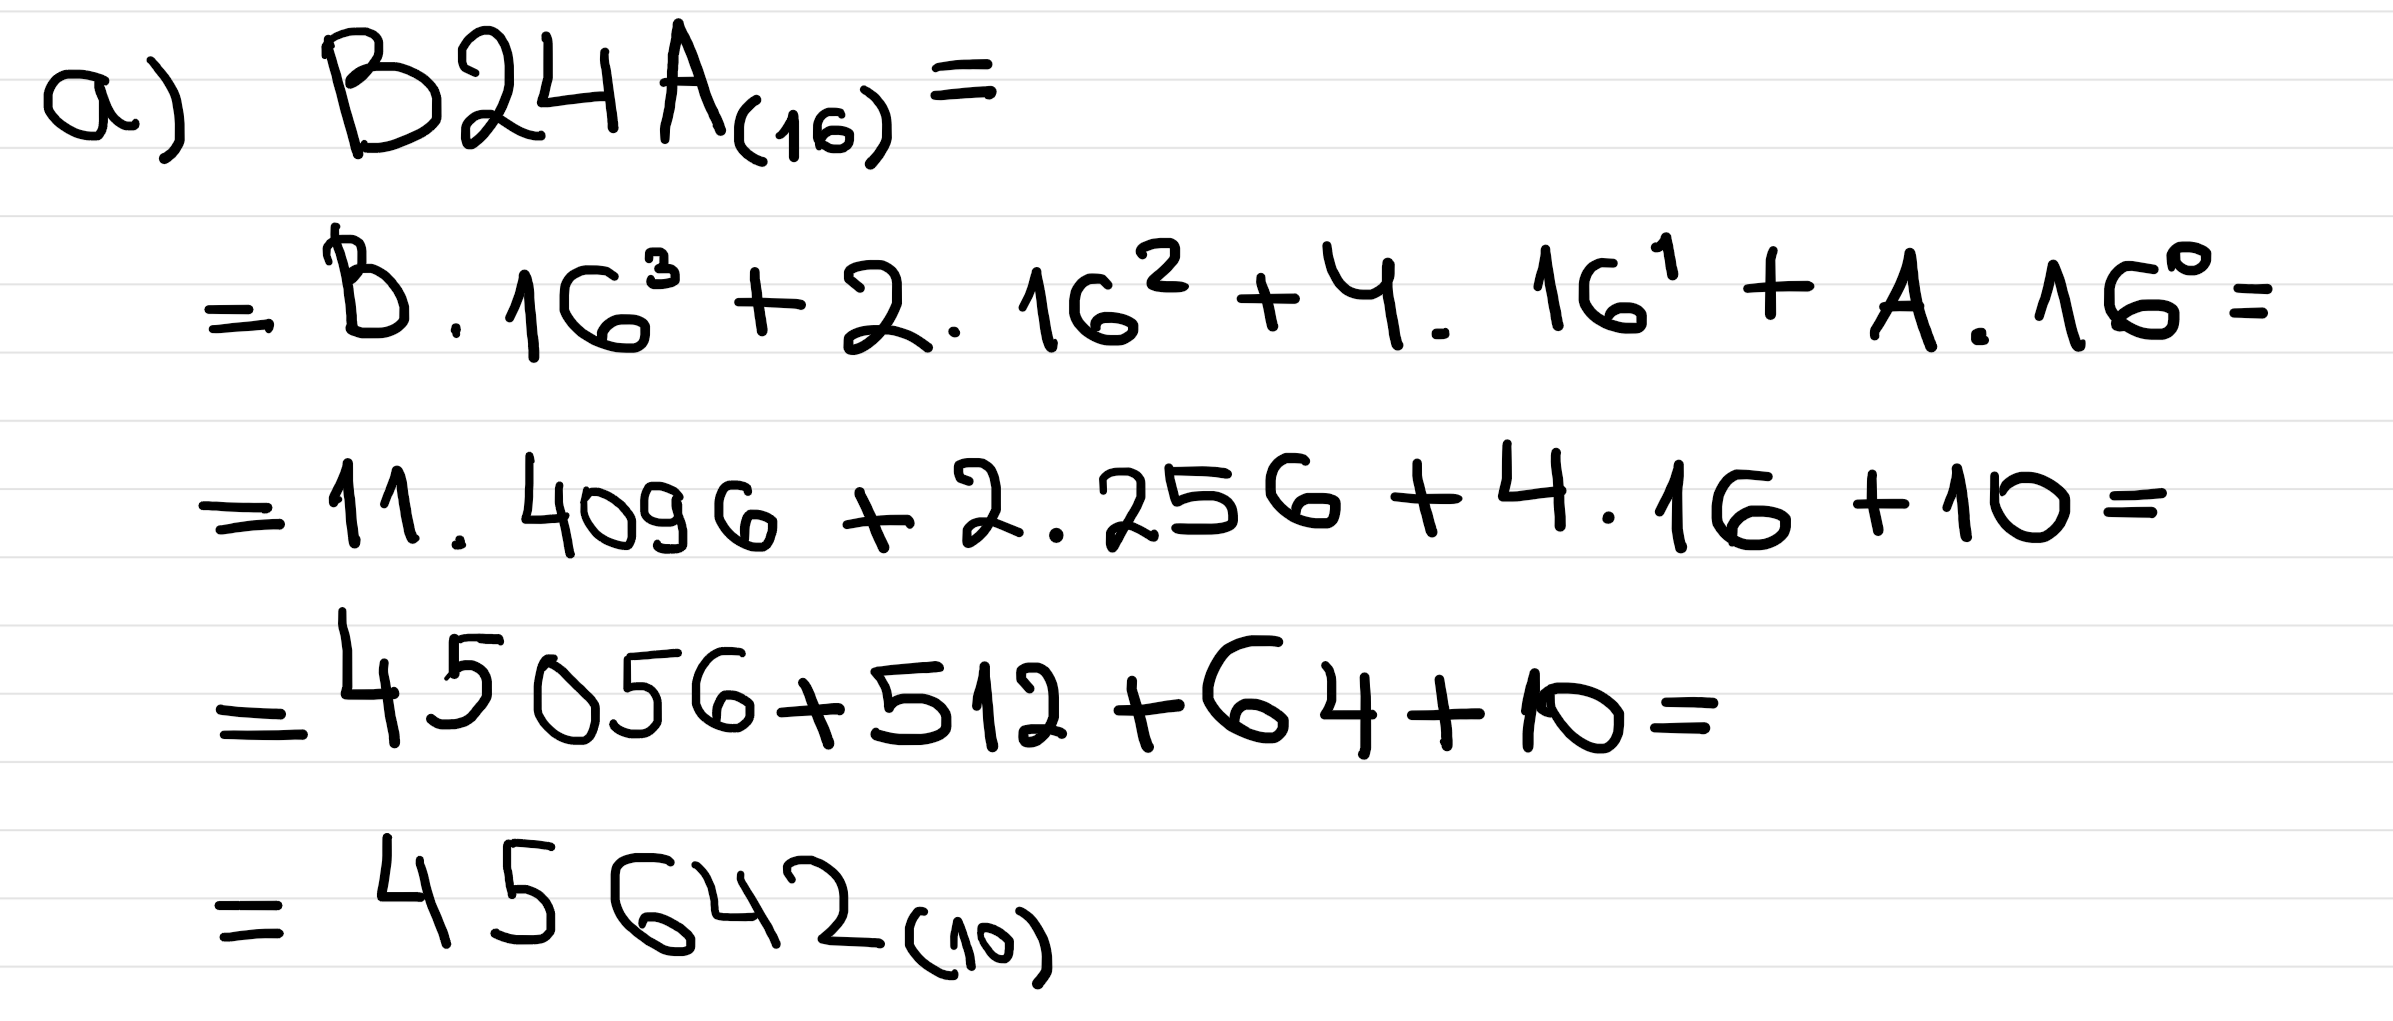 a) B24A₍₁₆₎ =
= B . 16³ + 2 . 16² + 4 . 16¹ + A . 16⁰ =
= 11 . 4096 + 2 . 256 + 4 . 16 + 10 =
= 45056 + 512 + 64 + 10 =
= 45642₍₁₀₎